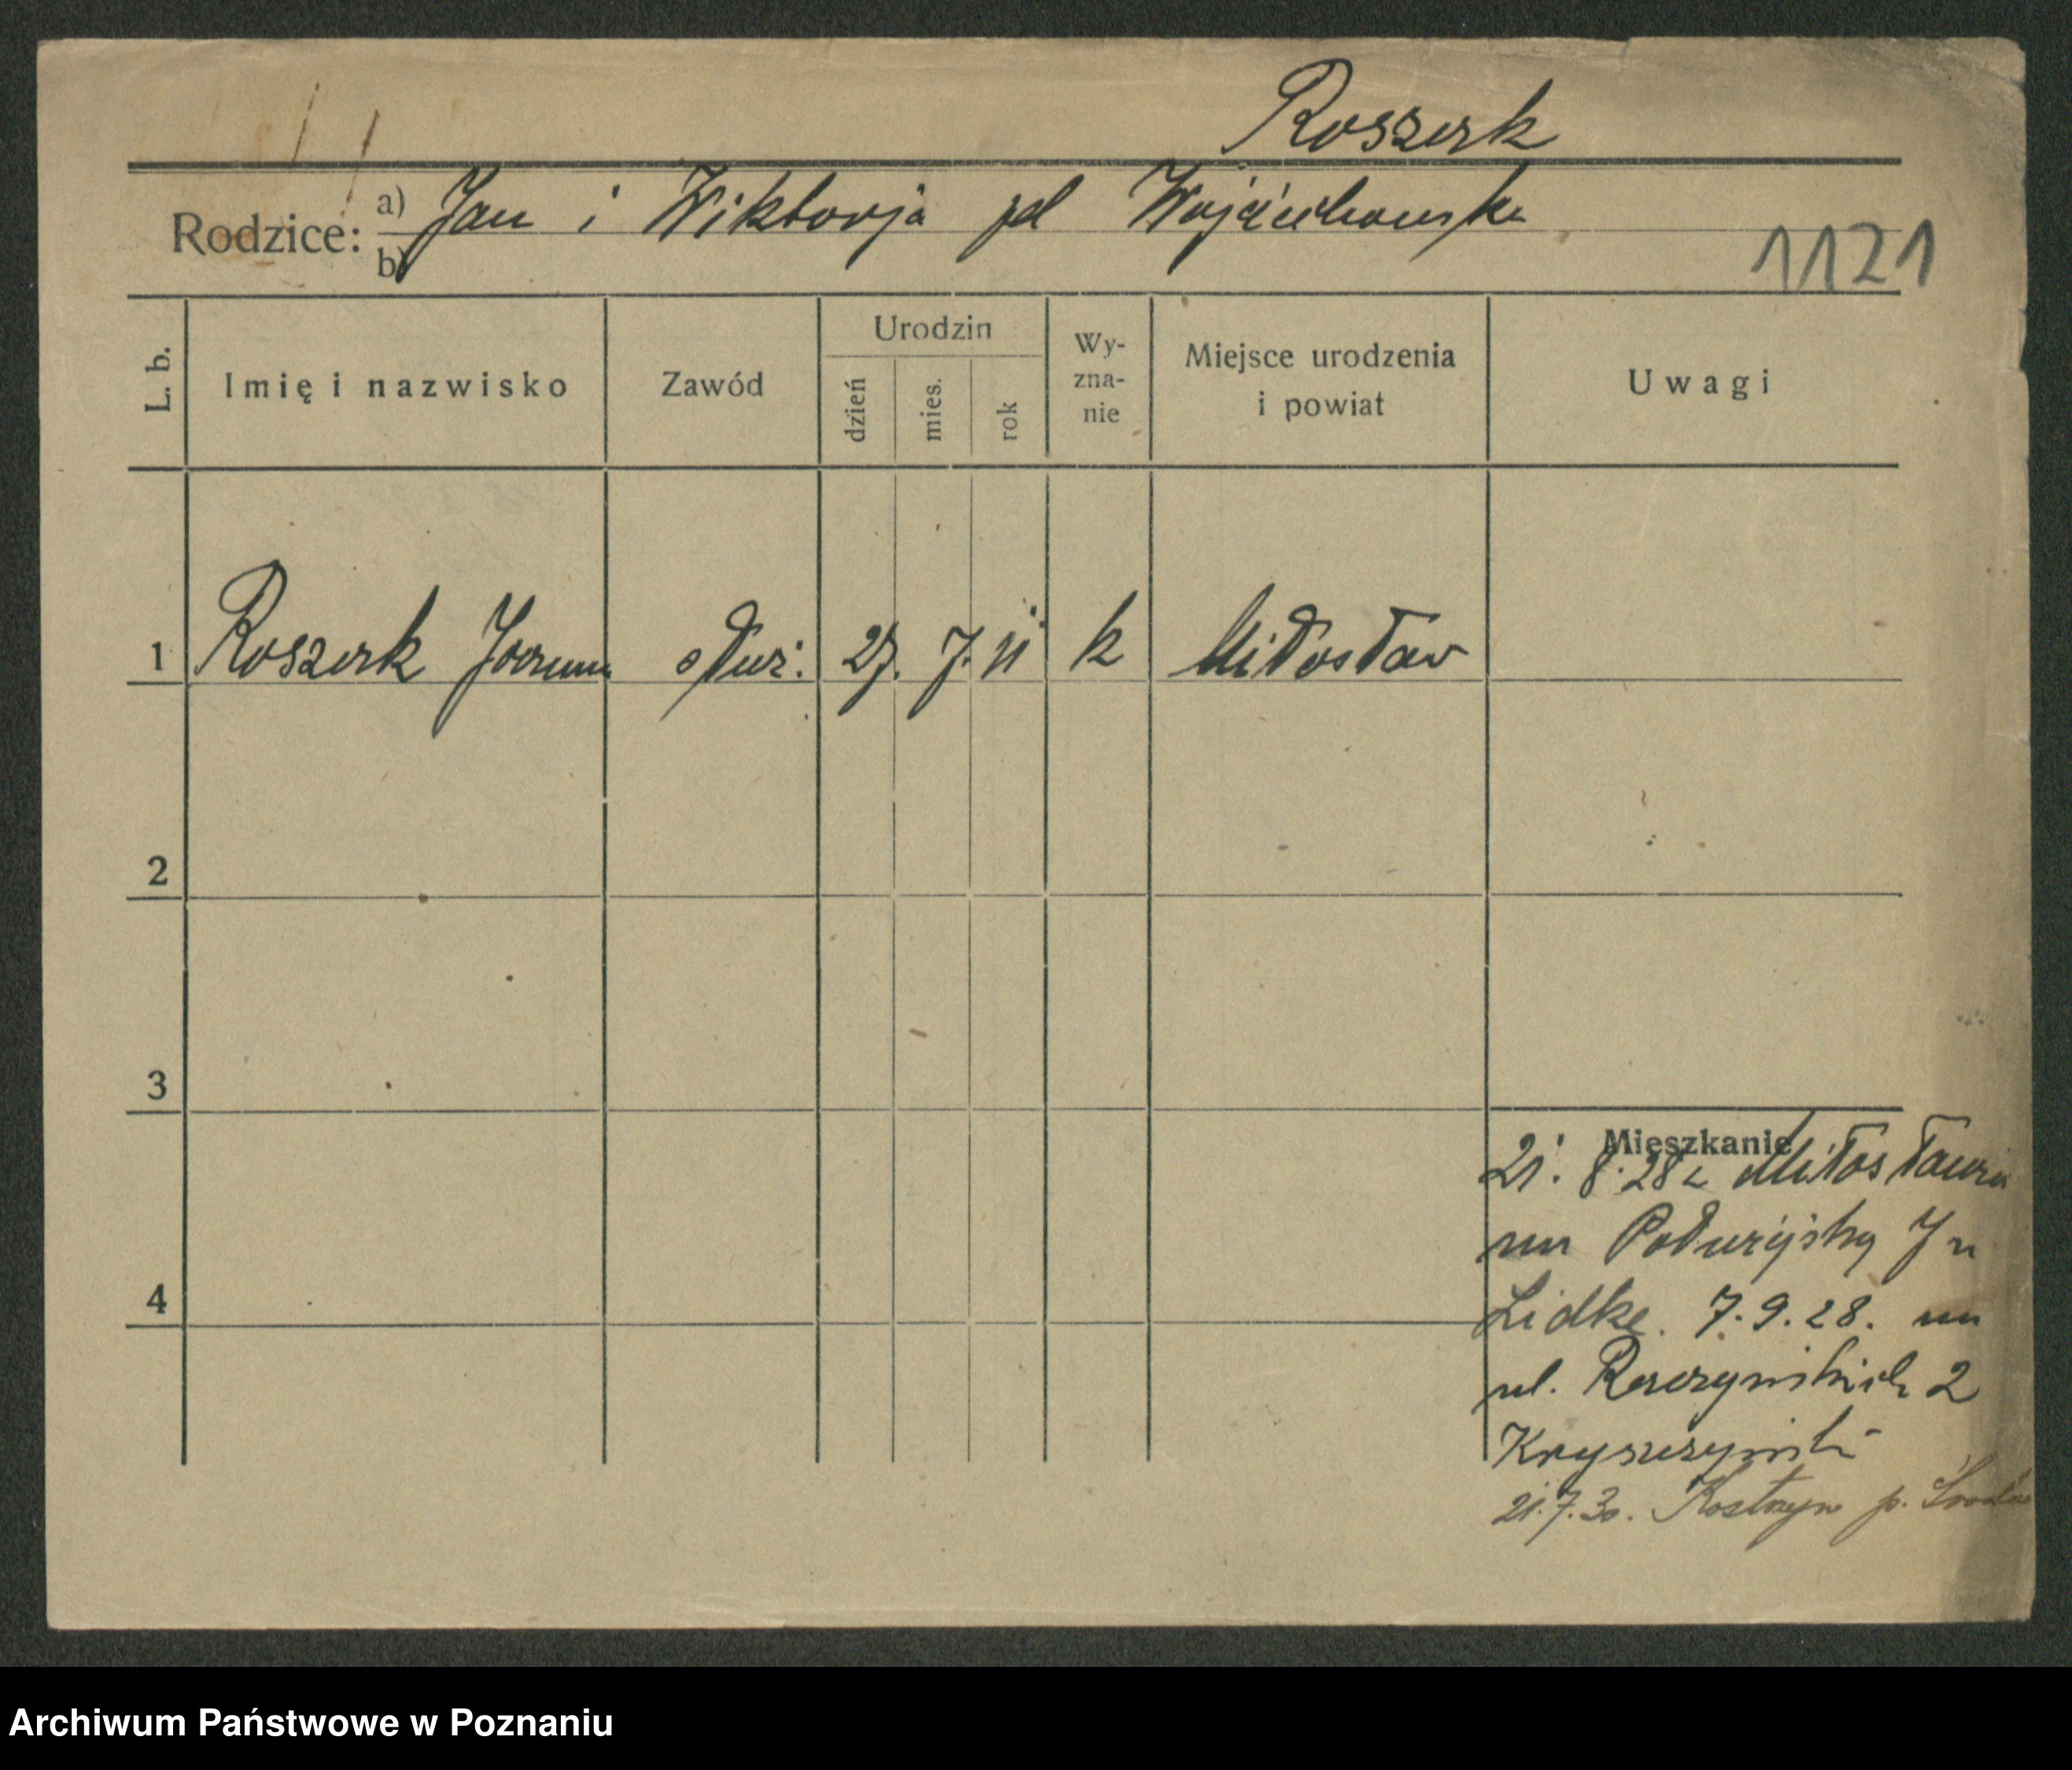 Roszerk
Rodzice: a) Jan i Wiktorja zd Wojciechowska
b)
1121
L. b.
Imię i nazwisko
Zawód
Urodzin
dzień
mies.
rok
Wy-
zna-
nie
Miejsce urodzenia
i powiat
Uwagi
1 Roszerk służ. 27. 7. 11 k Miłosław
2
3
4
Mieszkanie
21. 8. 28 z Miłosławia
na
Lidke. 7.9.28. na
ul. 2
21.7.30. Kostrzyn p. Środa
Archiwum Państwowe w Poznaniu